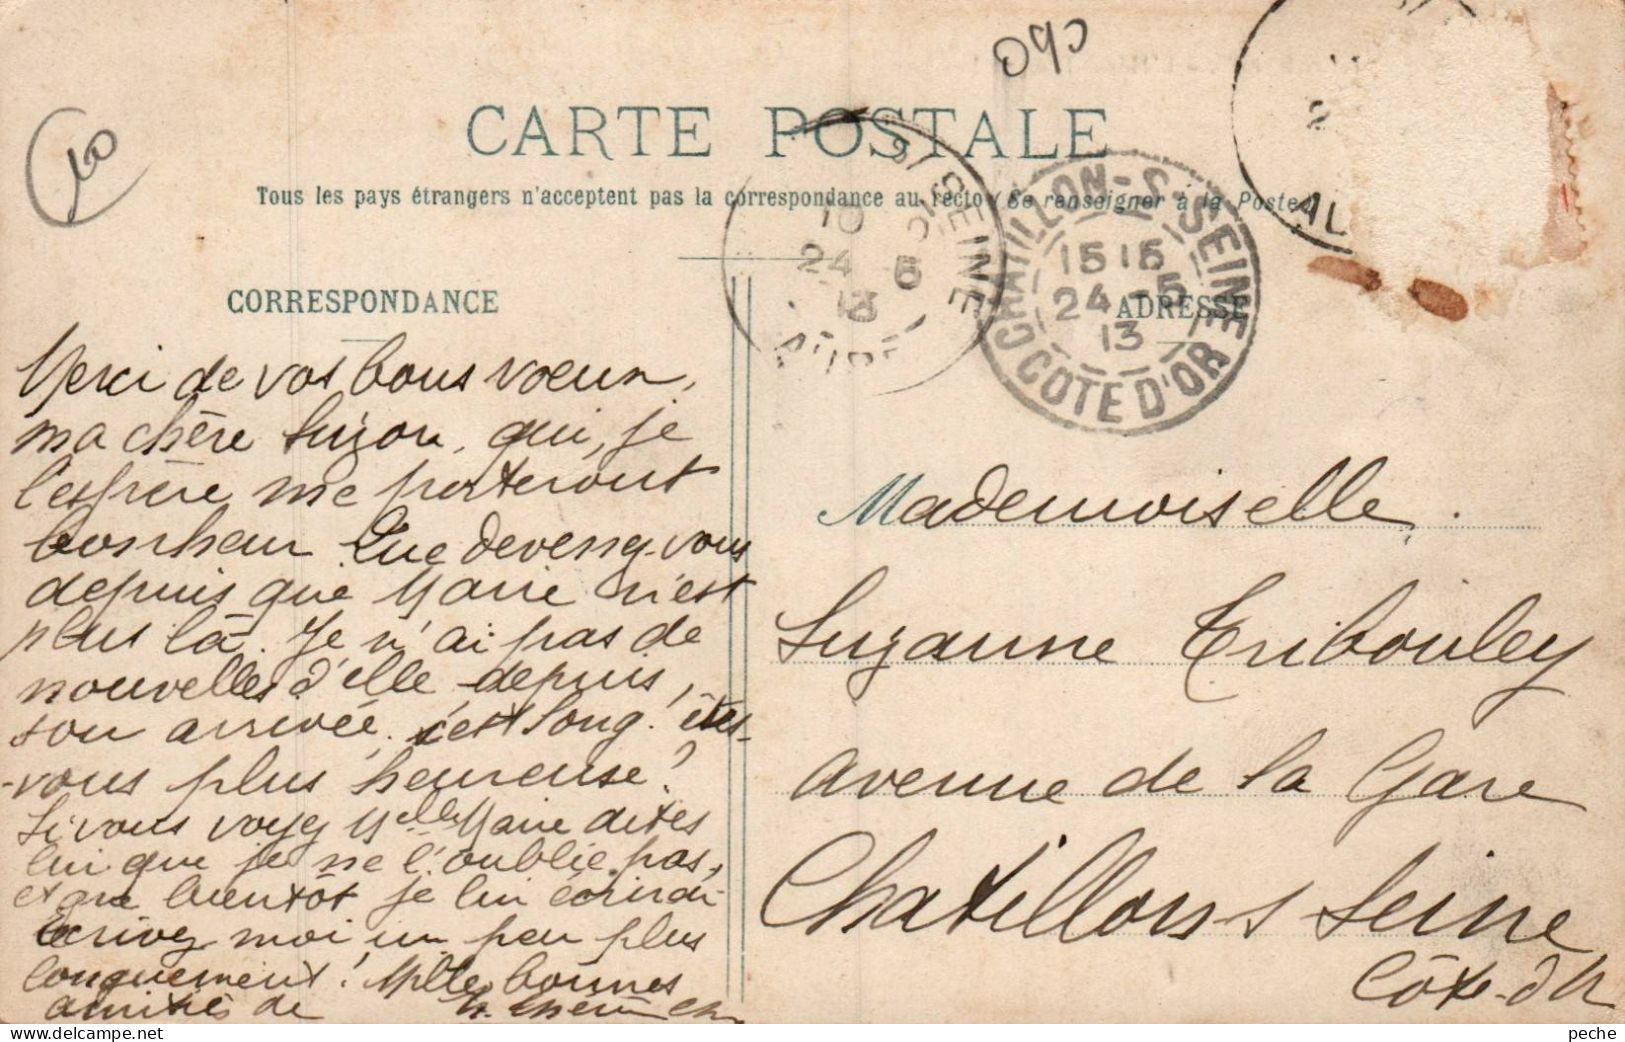 CARTE POSTALE
Tous les pays étrangers n'acceptent pas la correspondance au recto (Se renseigner à la Poste)
CORRESPONDANCE
ADRESSE
Merci de vos bons voeux,
ma chère Suzon, qui, je
l'espère me porteront
bonheur Que devenez-vous
depuis que Marie n'est
plus là. Je n'ai pas de
nouvelles d'elle, depuis
son arrivée. c'est long! êtes-
-vous plus heureuse?
Si vous voyez Melle Marie dites
lui que je ne l'oublie pas,
et que bientôt je lui écrirai
Ecrivez moi un peu plus
longuement! Mille bonnes
amitiés de
Mademoiselle
Suzanne Tribouley
avenue de la Gare
Chatillon s Seine
Côte-d'Or
CHATILLON-S-SEINE
15 15
24 -5
13
COTE D'OR
10
24 5
13
AUBE
SEINE
AU
10
peche